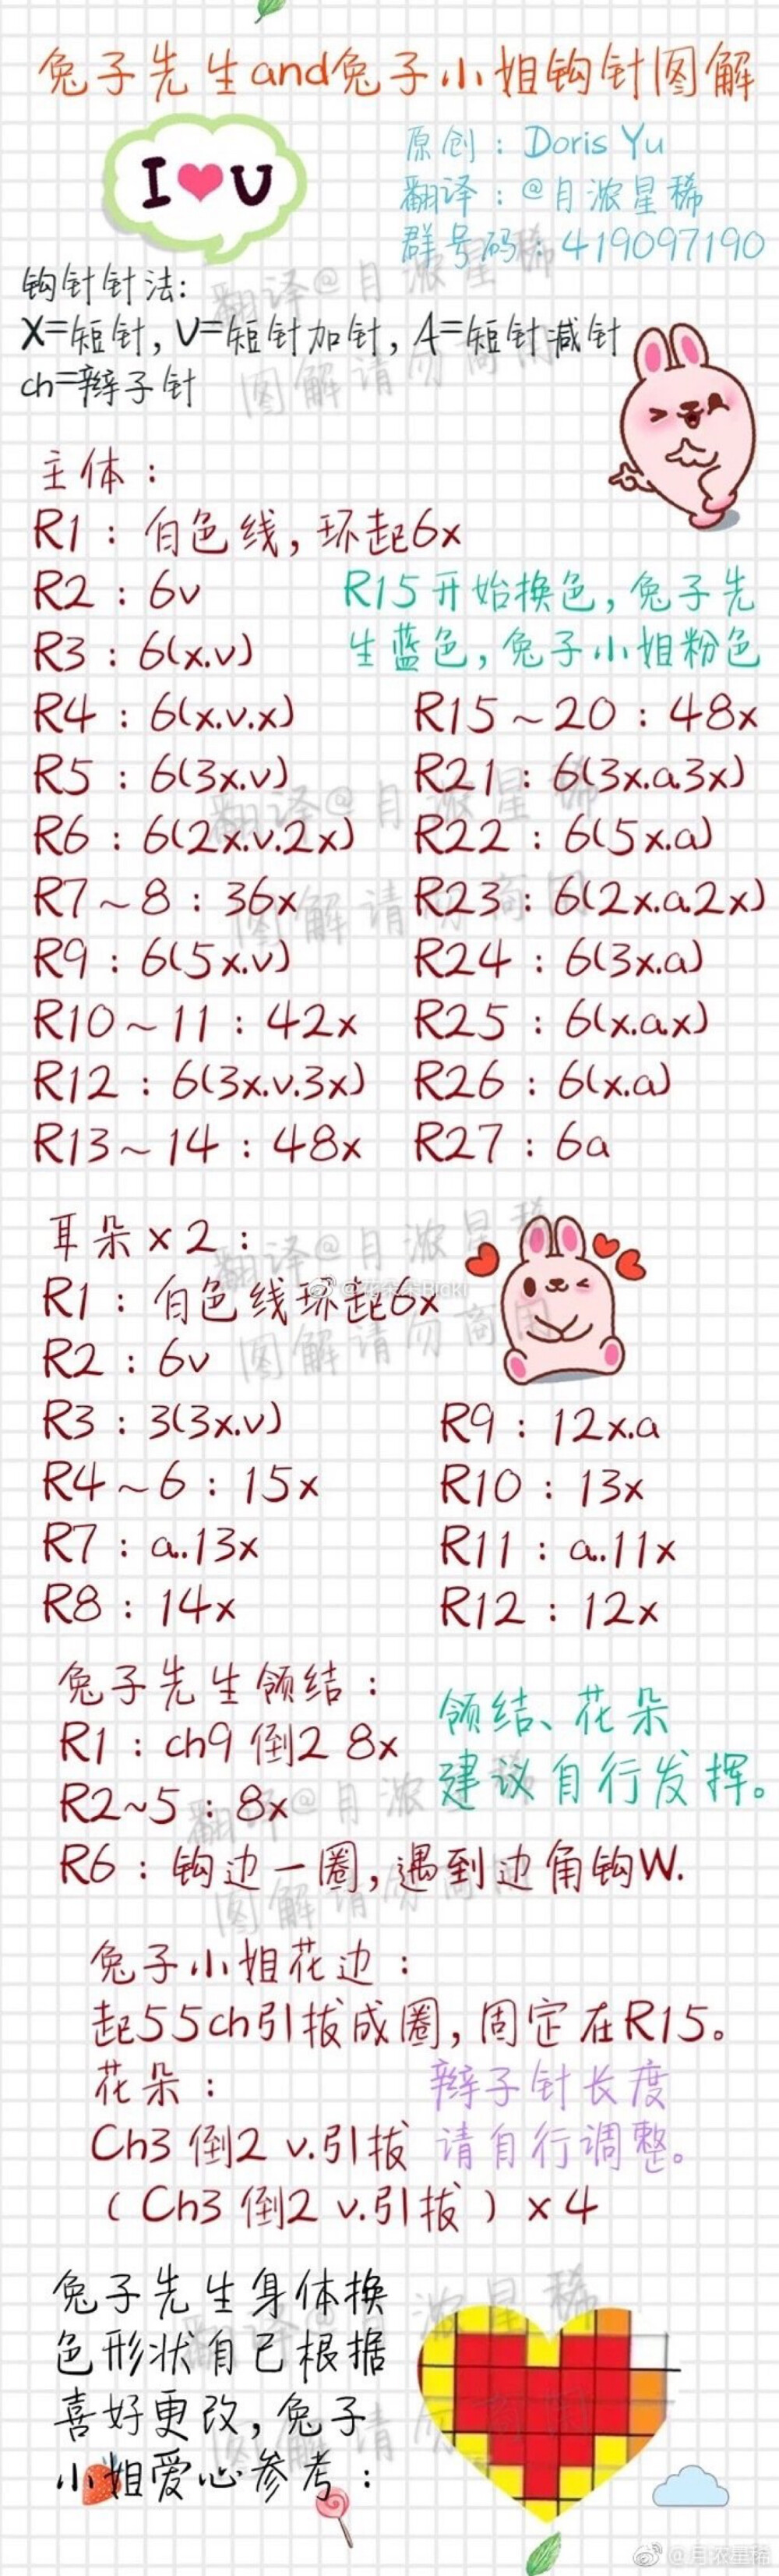 兔子先生and兔子小姐钩针图解
I ❤ U
原创：Doris Yu
翻译：@月浓星稀
群号码：419097190
钩针针法：
X=短针，V=短针加针，A=短针减针
ch=辫子针
主体：
R1：白色线，环起6x
R2：6v
R3：6(x.v)
R4：6(x.v.x)
R5：6(3x.v)
R6：6(2x.v.2x)
R7~8：36x
R9：6(5x.v)
R10~11：42x
R12：6(3x.v.3x)
R13~14：48x
R15开始换色，兔子先
生蓝色，兔子小姐粉色
R15~20：48x
R21：6(3x.a.3x)
R22：6(5x.a)
R23：6(2x.a.2x)
R24：6(3x.a)
R25：6(x.a.x)
R26：6(x.a)
R27：6a
耳朵x2：
R1：白色线环起6x
R2：6v
R3：3(3x.v)
R4~6：15x
R7：a..13x
R8：14x
R9：12x.a
R10：13x
R11：a..11x
R12：12x
兔子先生领结：
R1：ch9倒2 8x
R2~5：8x
R6：钩边一圈，遇到边角钩W.
领结、花朵
建议自行发挥。
兔子小姐花边：
起55ch引拔成圈，固定在R15。
花朵：
Ch3倒2 v.引拔
（Ch3倒2 v.引拔）x4
辫子针长度
请自行调整。
兔子先生身体换
色形状自己根据
喜好更改，兔子
小姐爱心参考：
翻译@月浓星稀
图解请勿商用
翻译@月浓星稀
图解请勿商用
翻译@月浓星稀
图解请勿商用
翻译@月浓星稀
图解请勿商用
翻译@月浓星稀
图解请勿商用
@月浓星稀